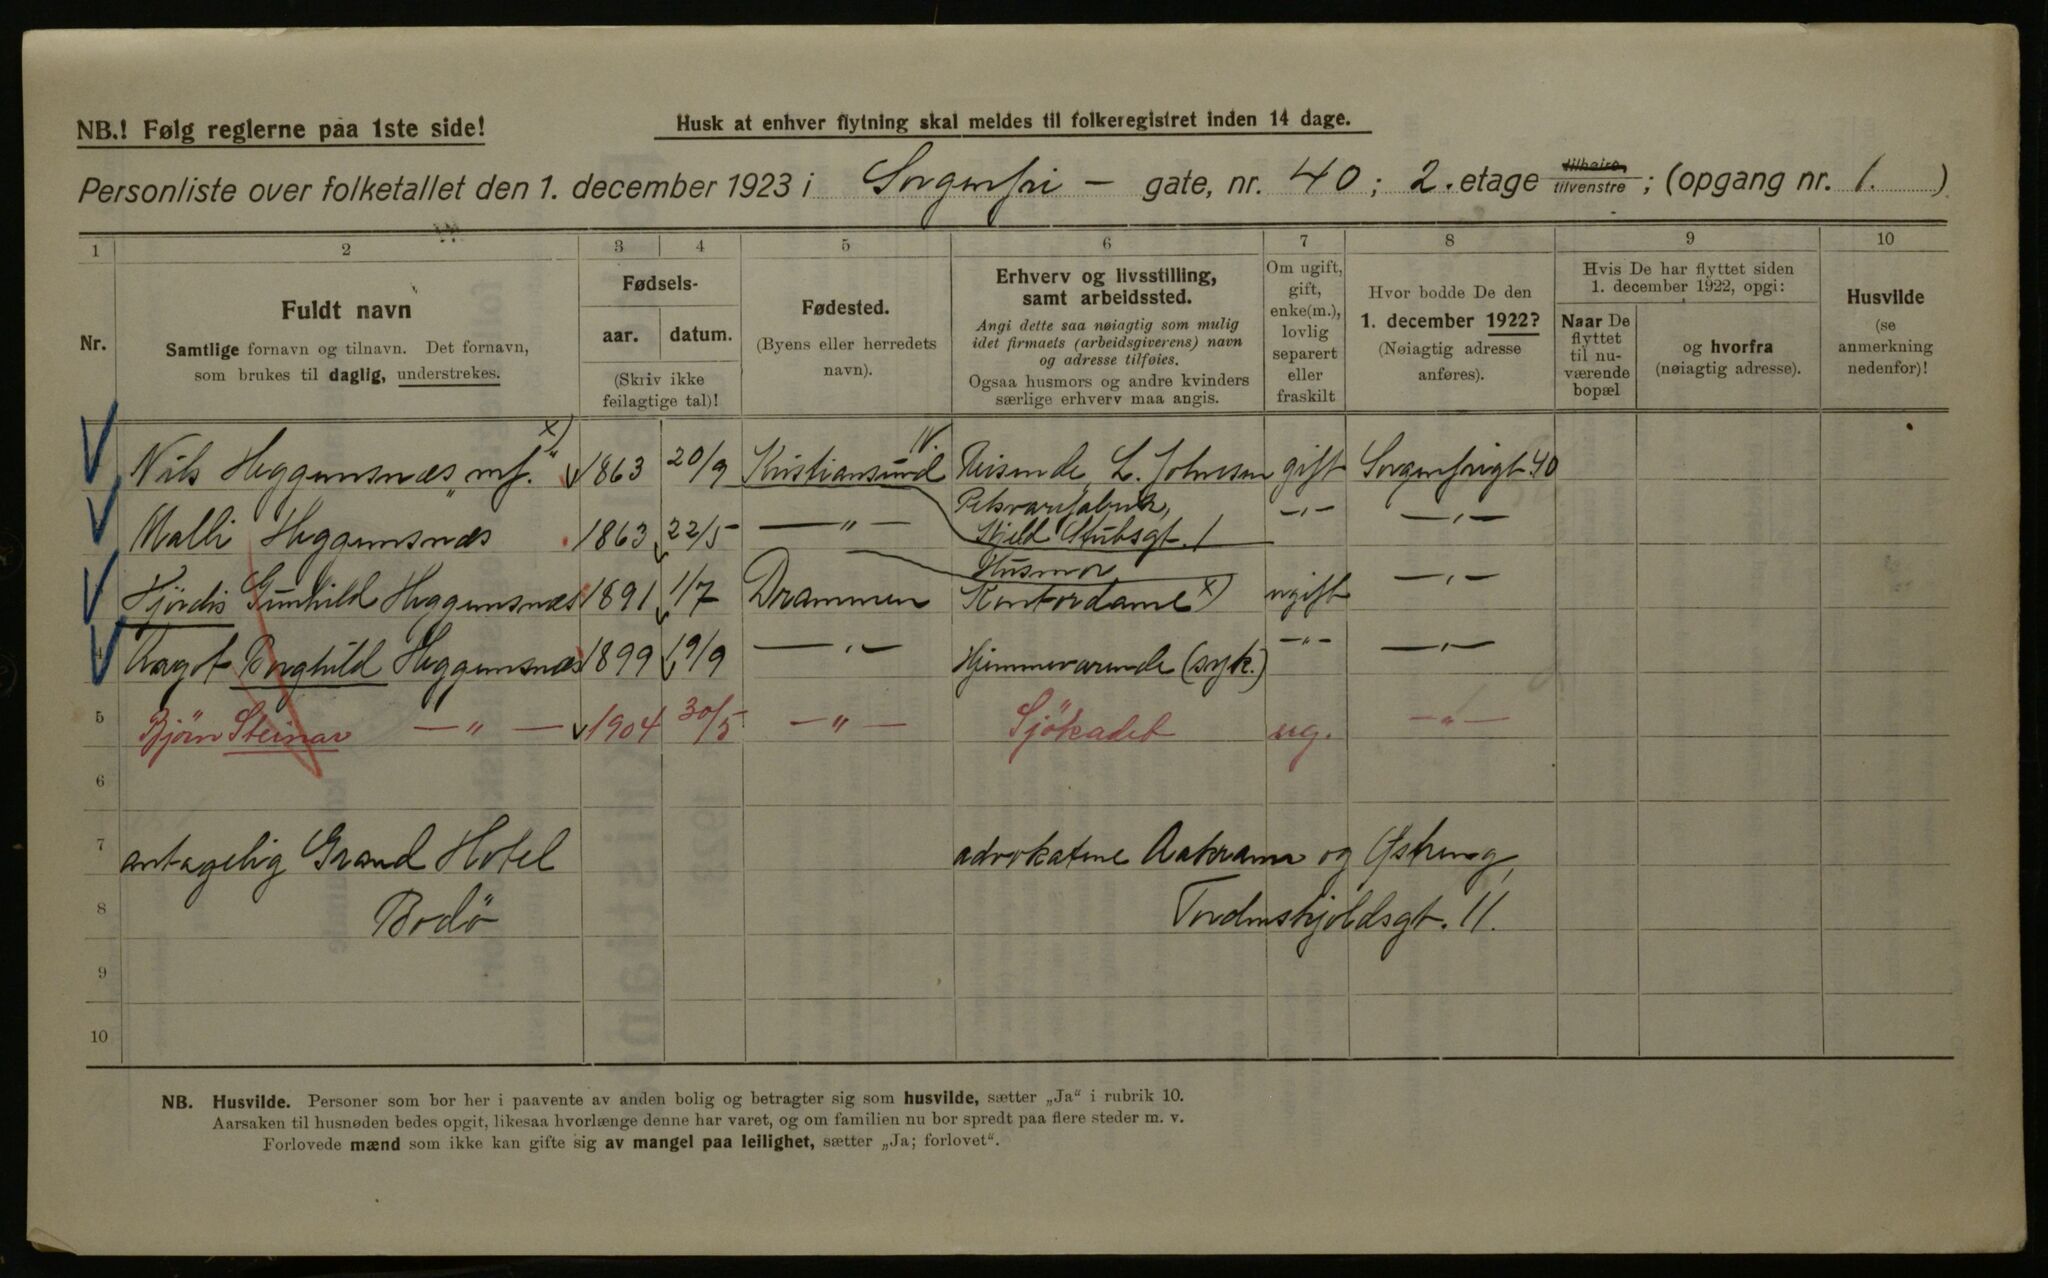 NB.! Følg reglerne paa 1ste side!
Husk at enhver flytning skal meldes til folkeregistret inden 14 dage.
Personliste over folketallet den 1. december 1923 i Sorgenfri - gate, nr. 40; 2. etage tilhøire, tilvenstre; (opgang nr. 1.)
1 2 3 4 5 6 7 8 9 10
Nr.
Fuldt navn
Samtlige fornavn og tilnavn. Det fornavn,
som brukes til daglig, understrekes.
Fødsels-
aar. datum.
(Skriv ikke
feilagtige tal)!
Fødested.
(Byens eller herredets
navn).
Erhverv og livsstilling,
samt arbeidssted.
Angi dette saa nøiagtig som mulig
idet firmaets (arbeidsgiverens) navn
og adresse tilføies.
Ogsaa husmors og andre kvinders
særlige erhverv maa angis.
Om ugift,
gift,
enke(m.),
lovlig
separert
eller
fraskilt
Hvor bodde De den
1. december 1922?
(Nøiagtig adresse
anføres).
Hvis De har flyttet siden
1. december 1922, opgi:
Naar De
flyttet
til nu-
værende
bopæl
og hvorfra
(nøiagtig adresse).
Husvilde
(se
anmerkning
nedenfor)!
Nils Heggemsnæs mf. x) 1863 20/9 Kristiansund N. Reisende L. Johnsen gift Sorgenfrigt. 40
Pelsvarefabrik,
Malli Heggemsnæs 1863 22/5 —„— Kield Stubsgt. 1 —„— —„—
Husmor
Hjørdis Gunhild Heggemsnæs 1891 1/7 Drammen Kontordame x) ugift —„—
4 Aagot Borghild Heggemsnæs 1899 19/9 —„— Hjemmeværende (syk.) —„— —„—
5 Bjørn Steinar —„— 1904 30/5 —„— Sjökadet ug. —„—
6
7 antagelig Grand Hotel advokatene Aakrann og Østreng,
8 Bodö Tordenskjoldsgt. 11.
9
10
NB. Husvilde. Personer som bor her i paavente av anden bolig og betragter sig som husvilde, sætter „Ja“ i rubrik 10.
Aarsaken til husnøden bedes opgit, likesaa hvorlænge denne har varet, og om familien nu bor spredt paa flere steder m. v.
Forlovede mænd som ikke kan gifte sig av mangel paa leilighet, sætter „Ja; forlovet“.